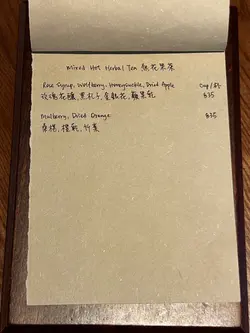 Mixed Hot Herbal Tea 熱花果茶
Rose Syrup, Wolfberry, Honeysuckle, Dried Apple Cup / 杯
玫瑰花釀, 黑杞子, 金銀花, 蘋果乾 $35
Mulberry, Dried Orange $35
桑椹, 橙乾,